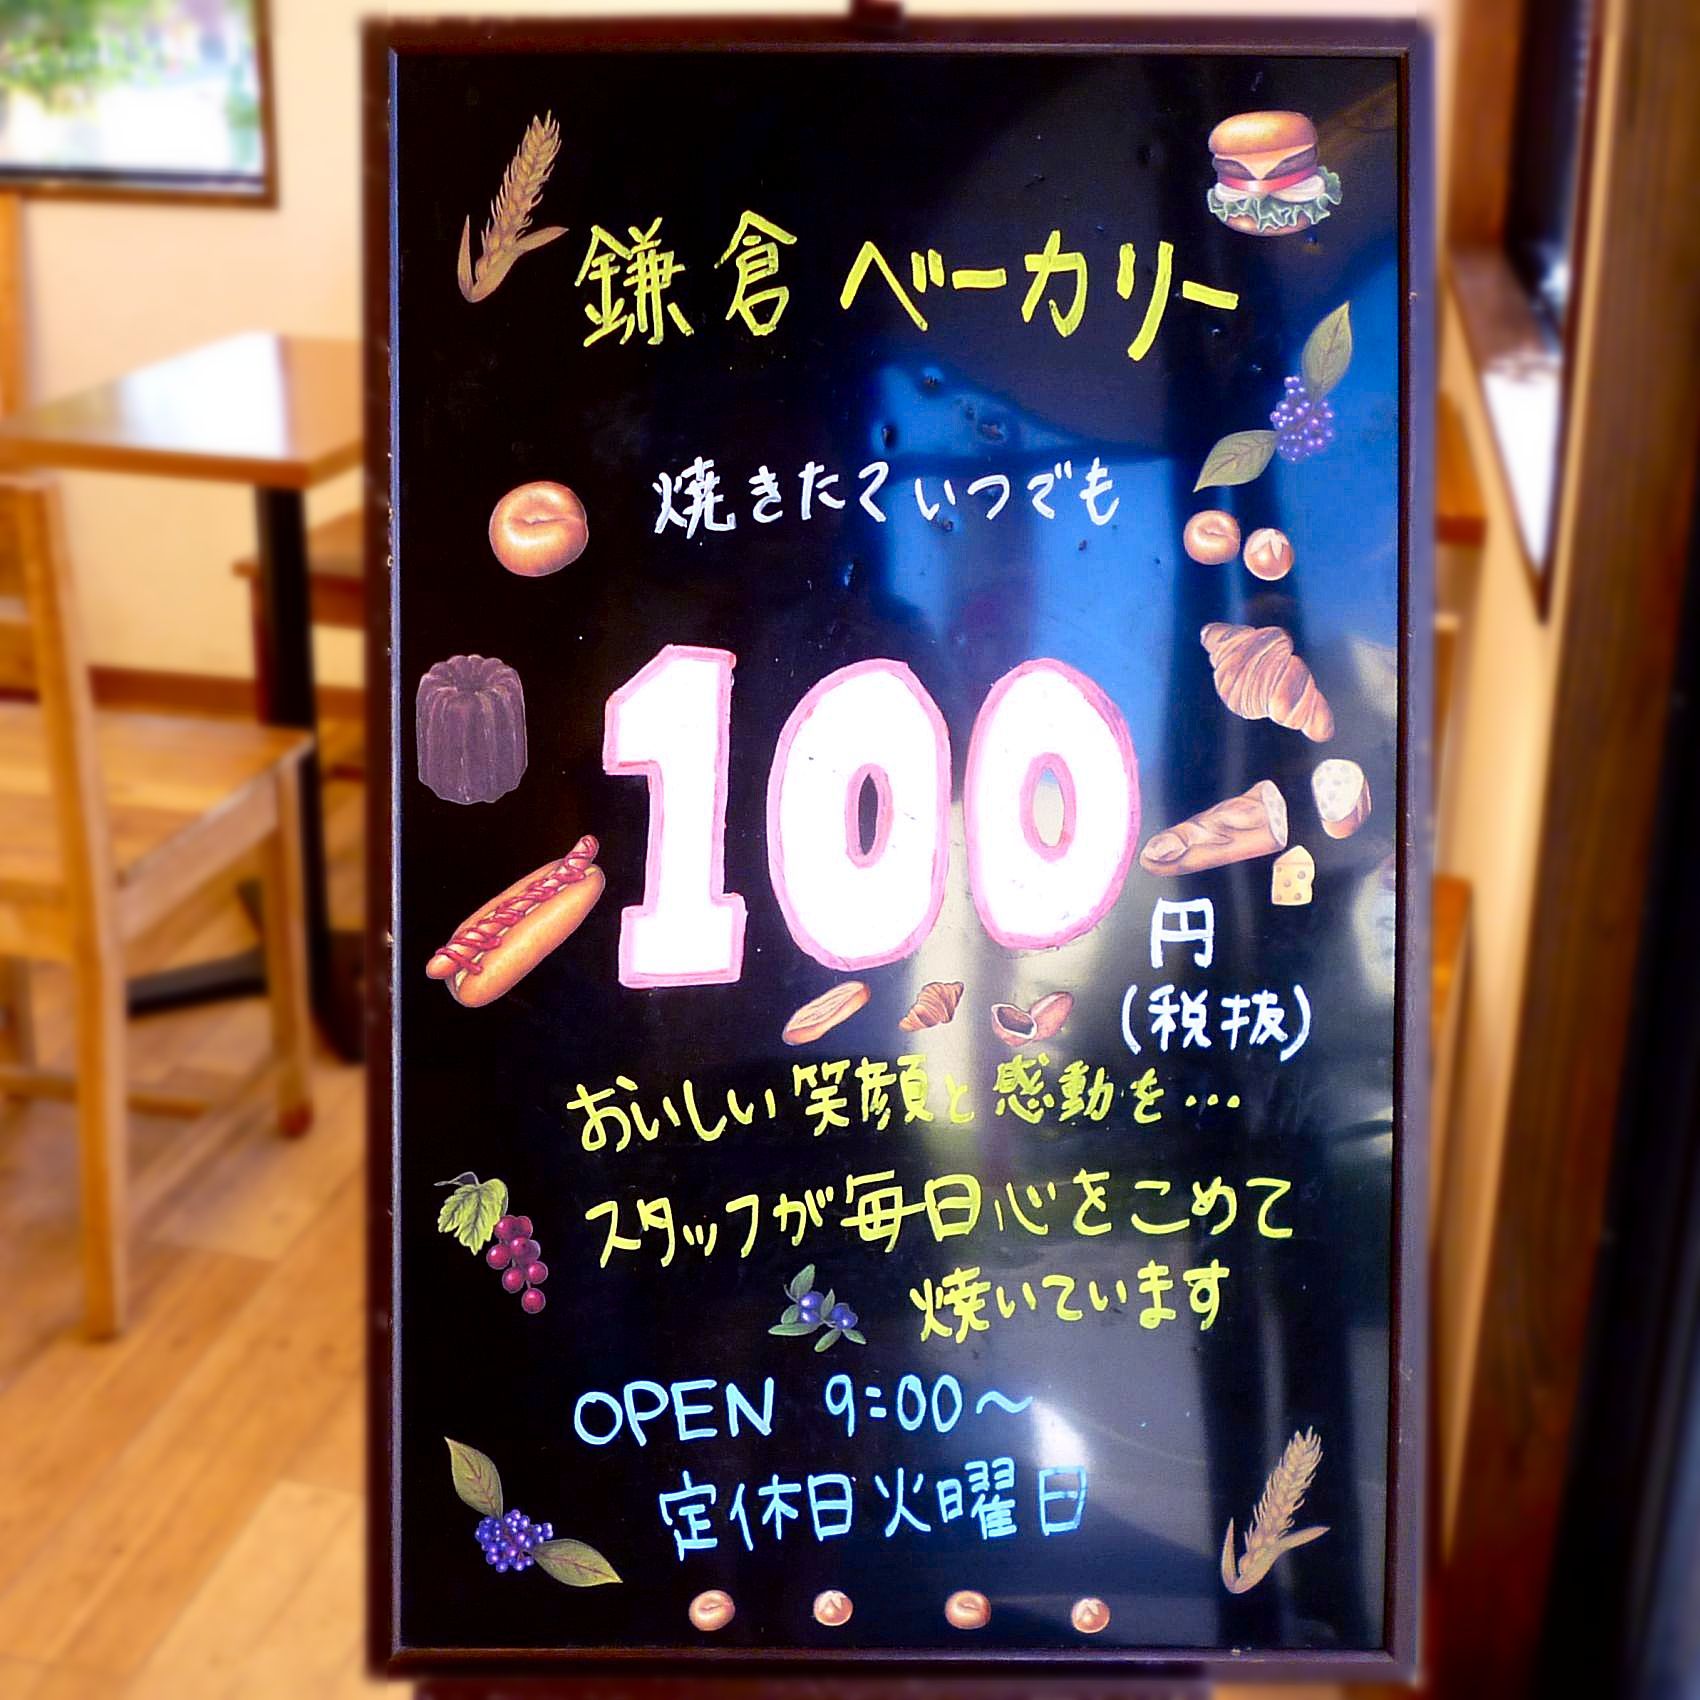 鎌倉ベーカリー
焼きたていつでも
100
円
(税抜)
おいしい笑顔と感動を…
スタッフが毎日心をこめて
焼いています
OPEN 9:00～
定休日火曜日